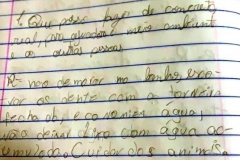 1. Que posso fazer de concreto
real, pra ajudar o meio ambient
as outras pessoas
R- não demorar no banho, esco-
var os dente com a torneira
fechada, economizar água,
não deixar lixo com água ac-
umulada. Cuidar dos animais.